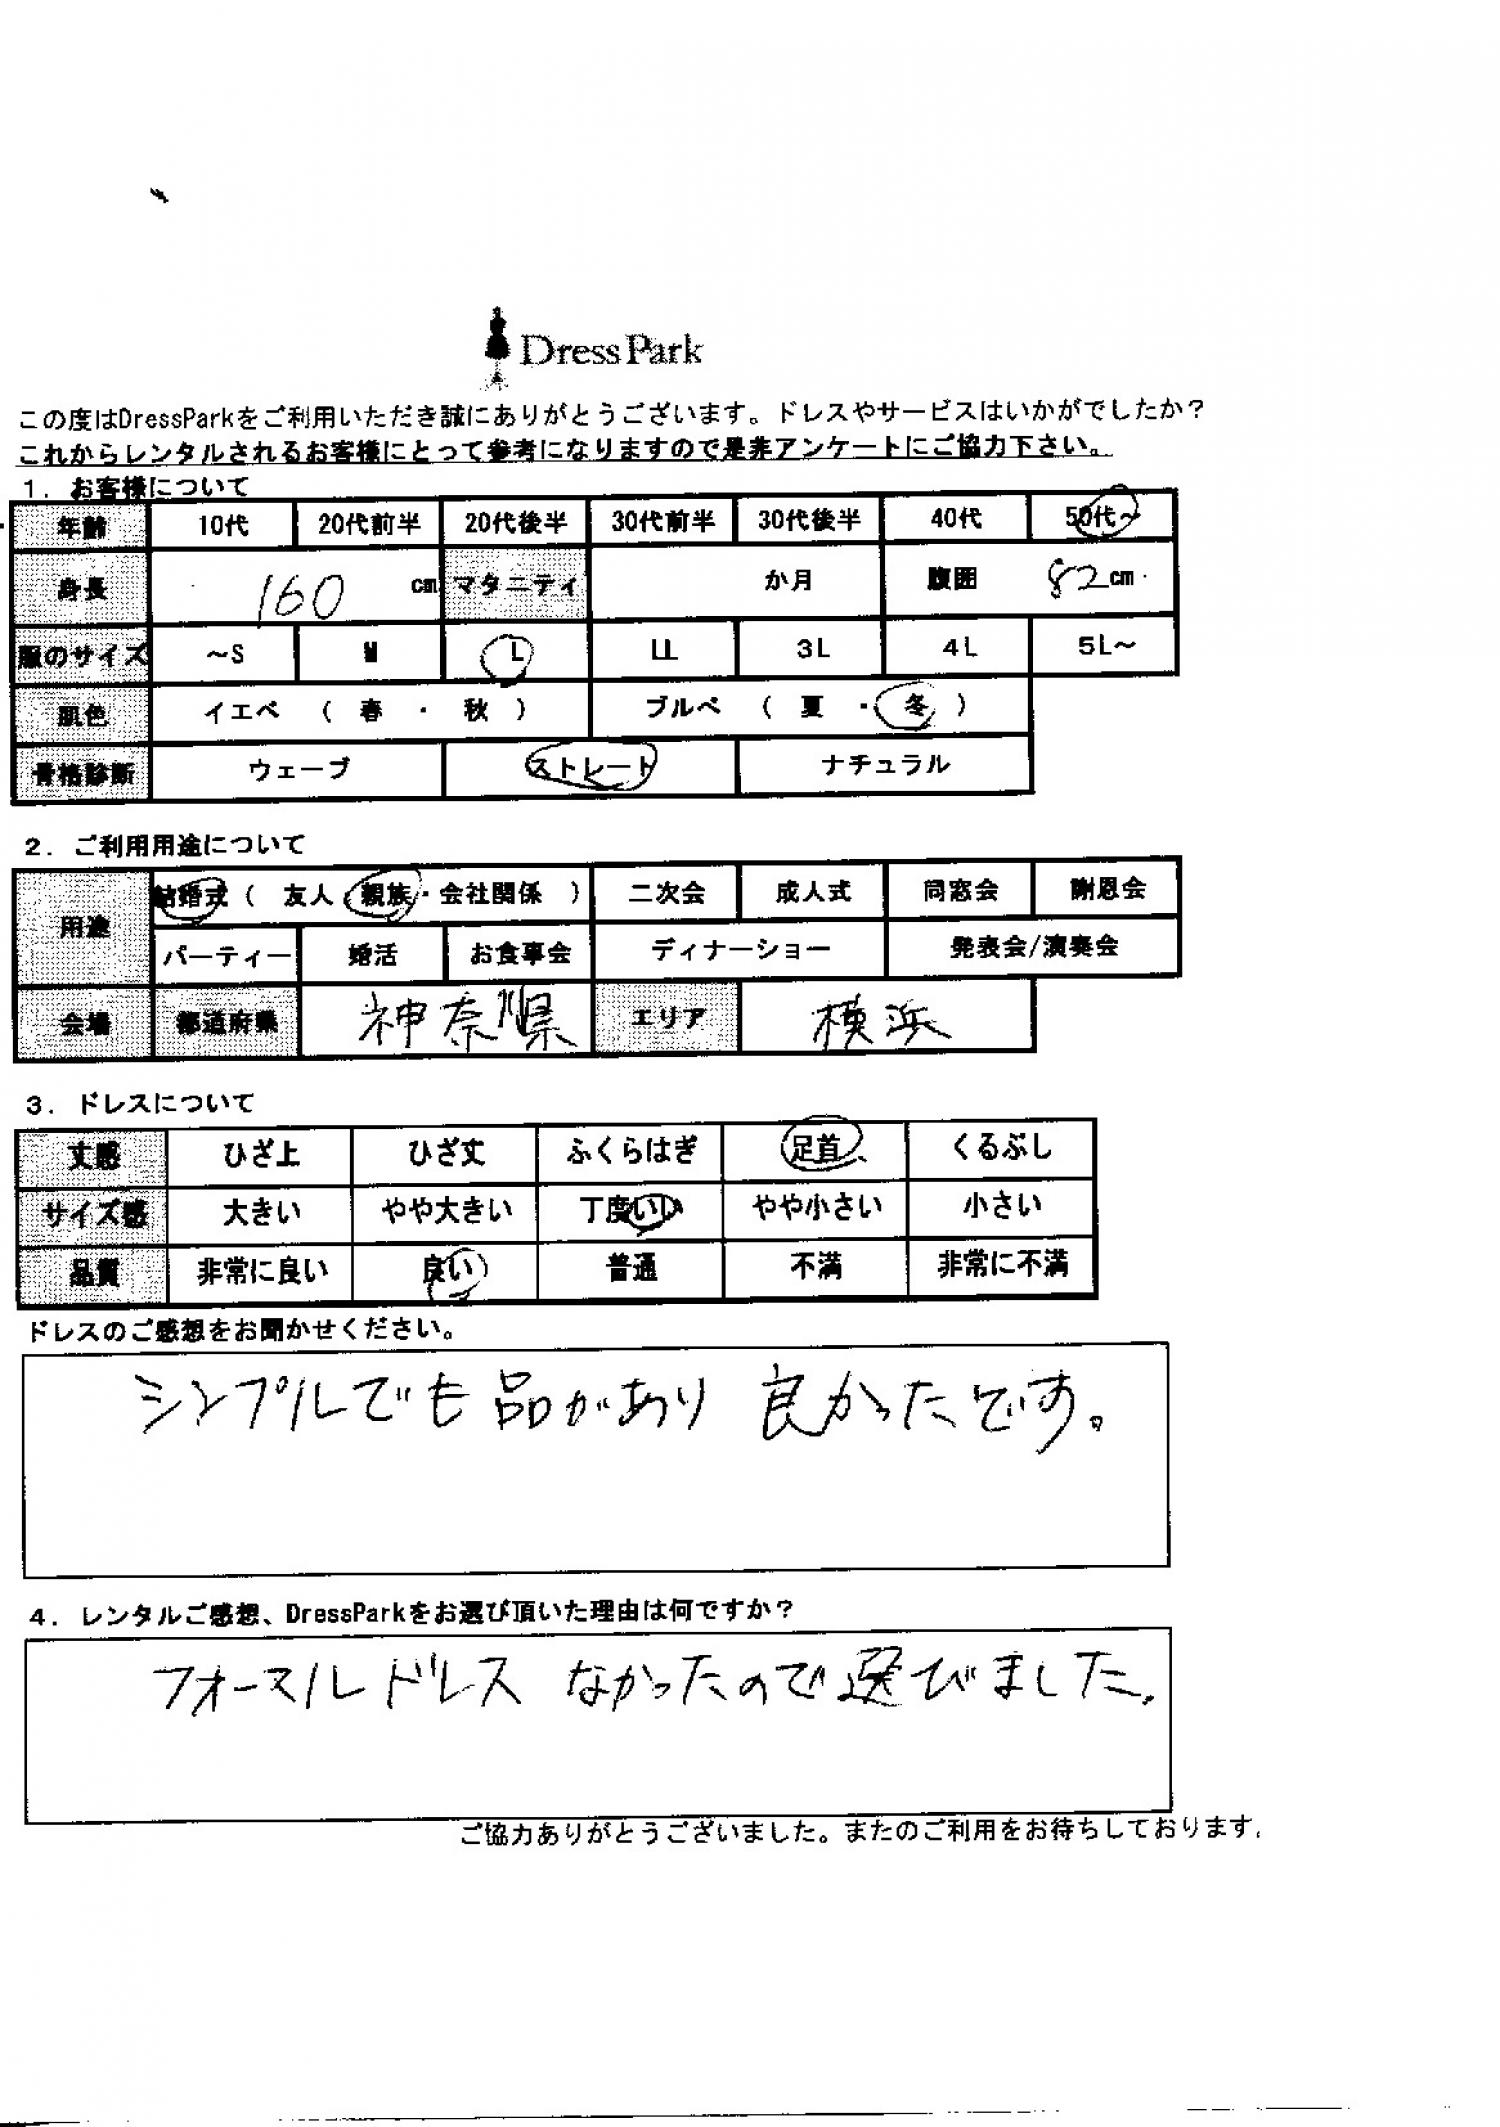 DressPark
この度はDressParkをご利用いただき誠にありがとうございます。ドレスやサービスはいかがでしたか？
これからレンタルされるお客様にとって参考になりますので是非アンケートにご協力下さい。
1. お客様について
年齢 10代 20代前半 20代後半 30代前半 30代後半 40代 50代～
身長 160 cm マタニティ か月 腹囲 82cm
服のサイズ ～S M L LL 3L 4L 5L～
肌色 イエベ （ 春 ・ 秋 ） ブルベ （ 夏 ・ 冬 ）
骨格診断 ウェーブ ストレート ナチュラル
2. ご利用用途について
用途 結婚式（ 友人・親族・会社関係 ） 二次会 成人式 同窓会 謝恩会
パーティー 婚活 お食事会 ディナーショー 発表会/演奏会
会場 都道府県 神奈川県 エリア 横浜
3. ドレスについて
丈感 ひざ上 ひざ丈 ふくらはぎ 足首 くるぶし
サイズ感 大きい やや大きい 丁度いい やや小さい 小さい
品質 非常に良い 良い 普通 不満 非常に不満
ドレスのご感想をお聞かせください。
シンプルでも品があり 良かったです。
4. レンタルご感想、DressParkをお選び頂いた理由は何ですか？
フォーマルドレス なかったので選びました。
ご協力ありがとうございました。またのご利用をお待ちしております。